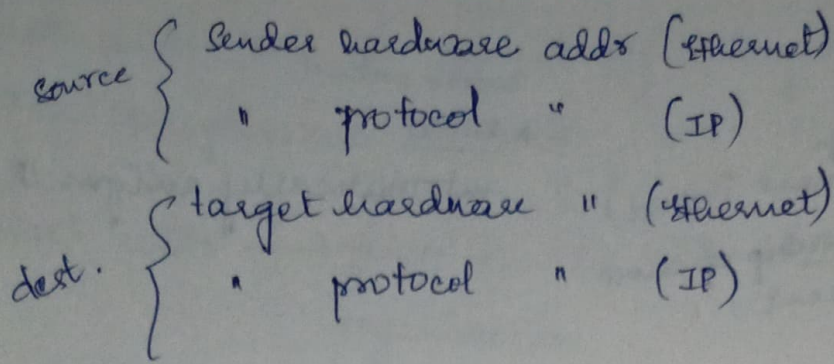 source { Sender hardware addr (Ethernet)
" protocol " (IP)
dest. { target hardware " (Ethernet)
" protocol " (IP)